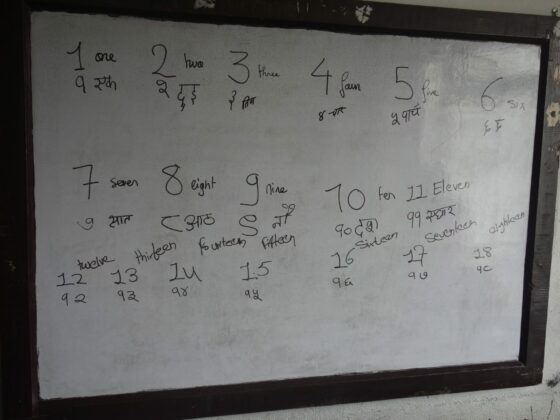 1 one 2 two 3 three 4 four 5 five 6 six
१ एक २ दुइ ३ तिन ४ चार ५ पाचँ ६ छ
7 seven 8 eight 9 nine 10 ten 11 Eleven
७ सात ८ आठ ९ नौ १० दश ११ एघार
twelve thirteen fourteen fifteen sixteen seventeen eighteen
12 13 14 15 16 17 18
१२ १३ १४ १५ १६ १७ १८